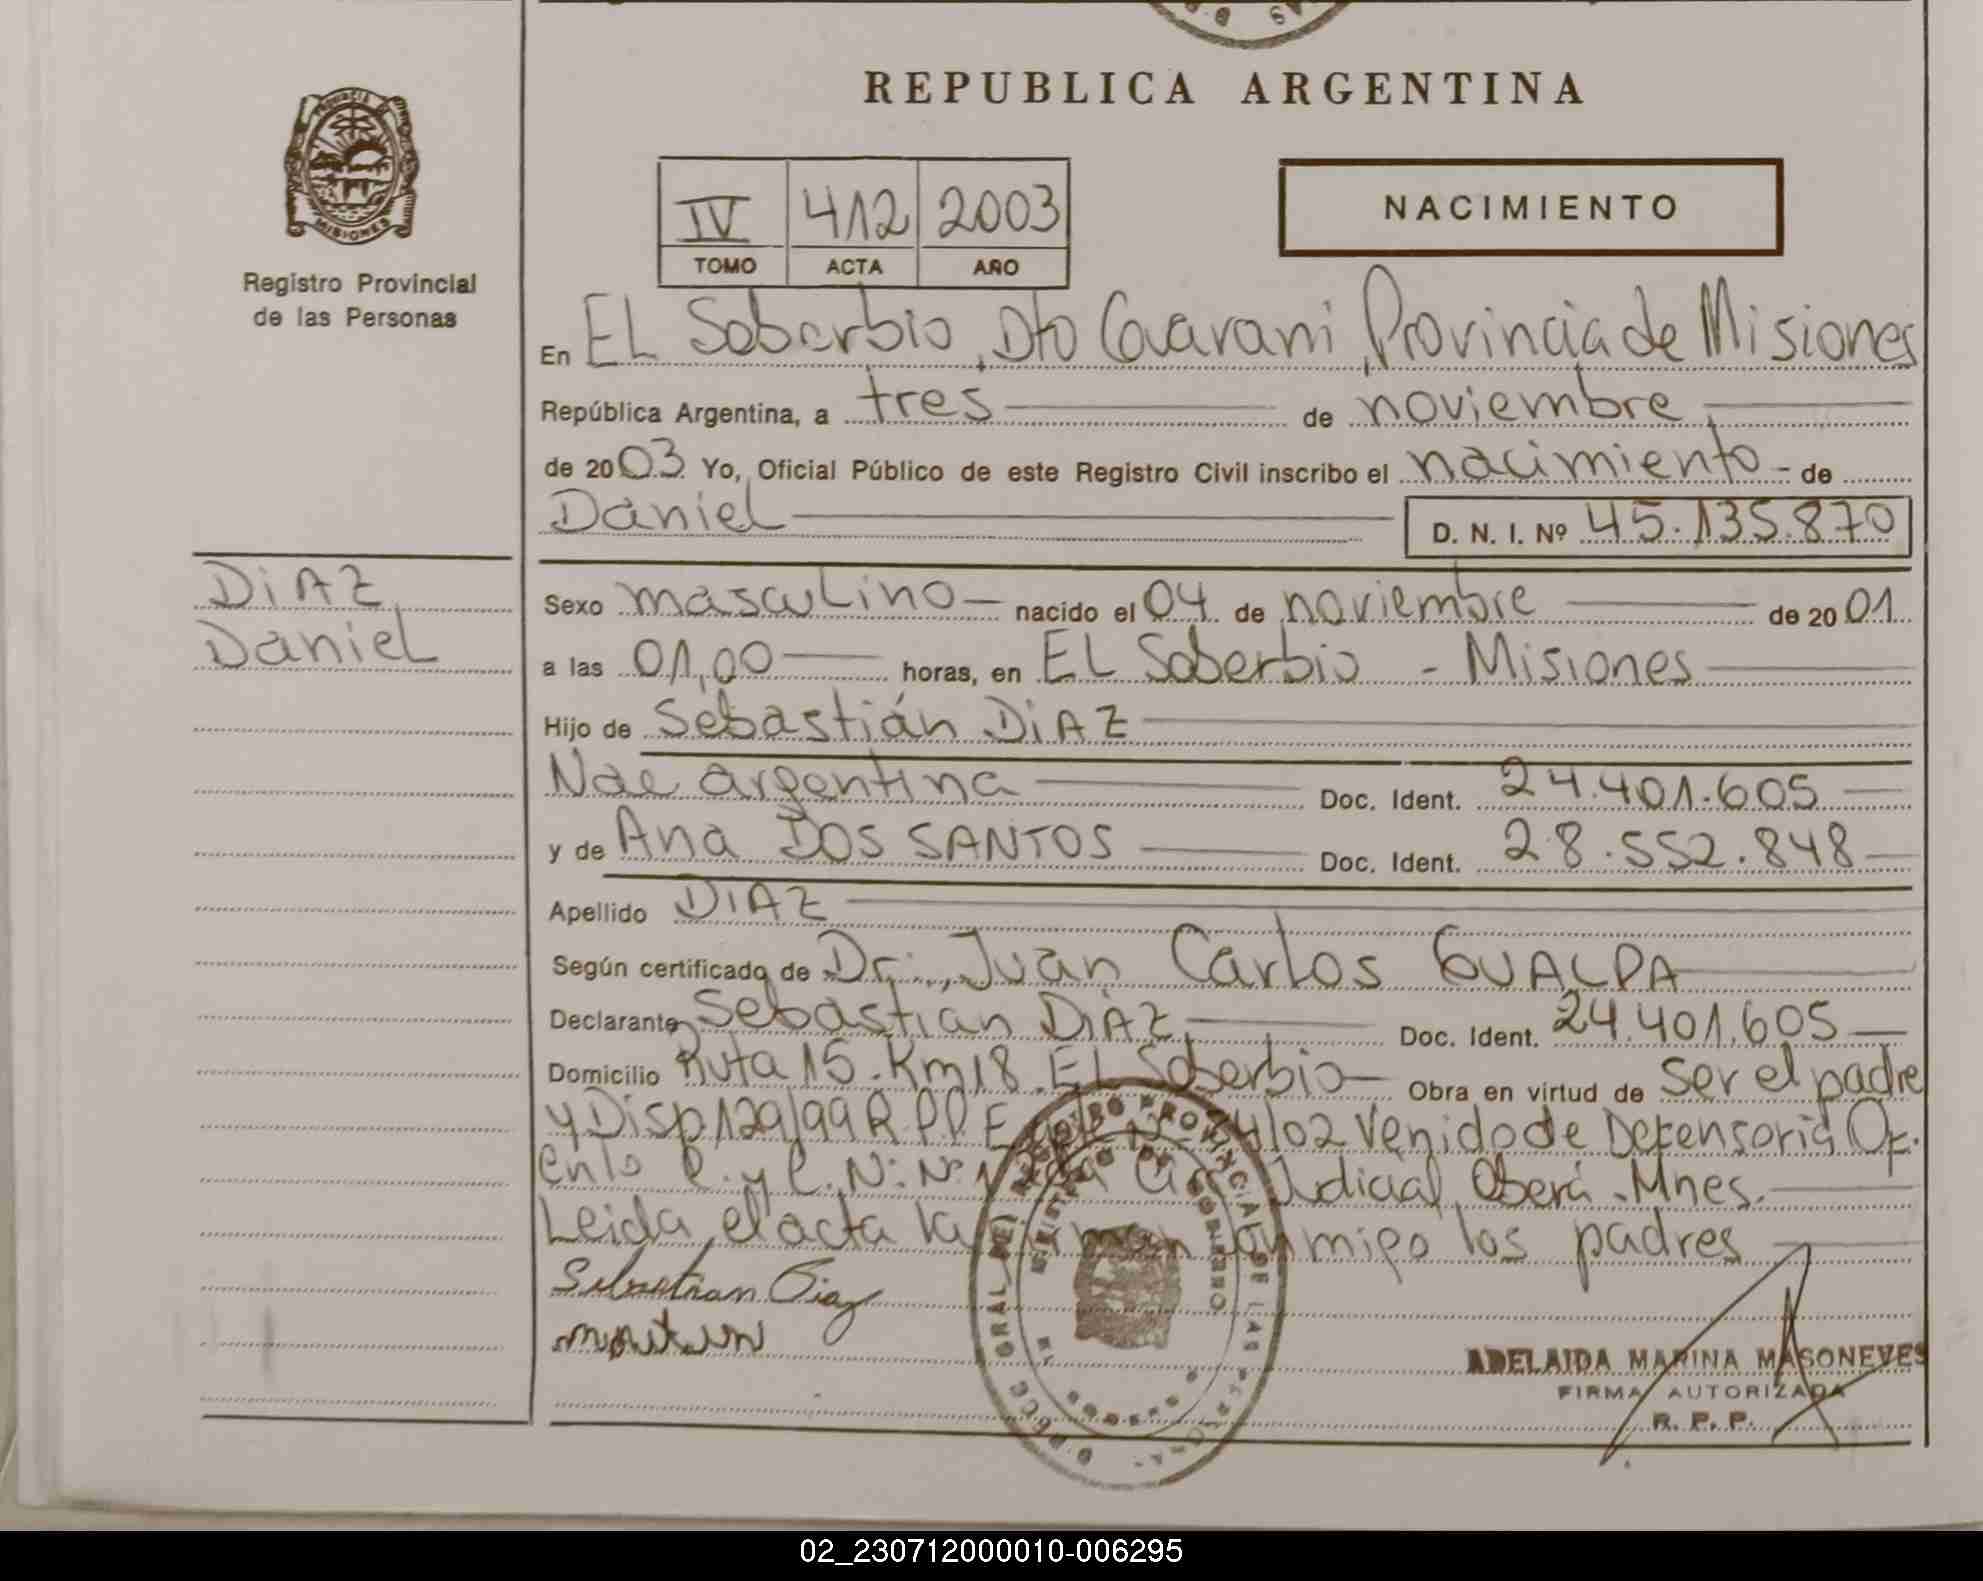 REPUBLICA ARGENTINA
PROVINCIA
MISIONES
Registro Provincial
de las Personas
IV 412 2003
TOMO ACTA AÑO
NACIMIENTO
En EL Soberbio, Dto Guarani, Provincia de Misiones
República Argentina, a tres de noviembre
de 2003 Yo, Oficial Público de este Registro Civil inscribo el nacimiento - de
Daniel D. N. I. Nº 45.135.870
DiAZ
Daniel
Sexo masculino nacido el 04 de noviembre de 2001
a las 01,00 horas, en EL Soberbio - Misiones
Hijo de Sebastián DiAZ
Nac argentina Doc. Ident. 24.401.605
y de Ana DOS SANTOS Doc. Ident. 28.552.848
Apellido DIAZ
Según certificado de Dr. Juan Carlos GUALPA
Declarante Sebastian DiAZ Doc. Ident. 24.401.605
Domicilio Ruta 15. Km 18. EL Soberbio Obra en virtud de ser el padre
y Disp. 129/99 R.P.P. E 4/02 Venido de Defensoria Of.
en lo C. y C. N: Nº 1 Judicial Oberá. Mnes.
Leida el acta la firman conmigo los padres
Sebastian Diaz
ADELAIDA MARINA MASONEVES
FIRMA AUTORIZADA
R. P. P.
02_230712000010-006295